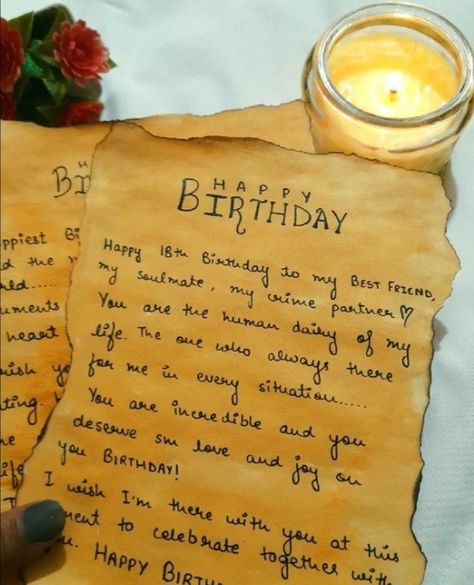 BI
ppiest Bi
d the
rld.....
uments
heart
ish yo
ting
life
HAPPY
BIRTHDAY
Happy 18th Birthday to my BEST FRIEND,
my soulmate, my crime partner♡
You are the human dairy of my
life. The one who always there
for me in every situation.....
You are incredible and you
deserve sm love and joy on
you BIRTHDAY!
I wish I'm there with you at this
ment to celebrate together with
u. HAPPY BIRTH